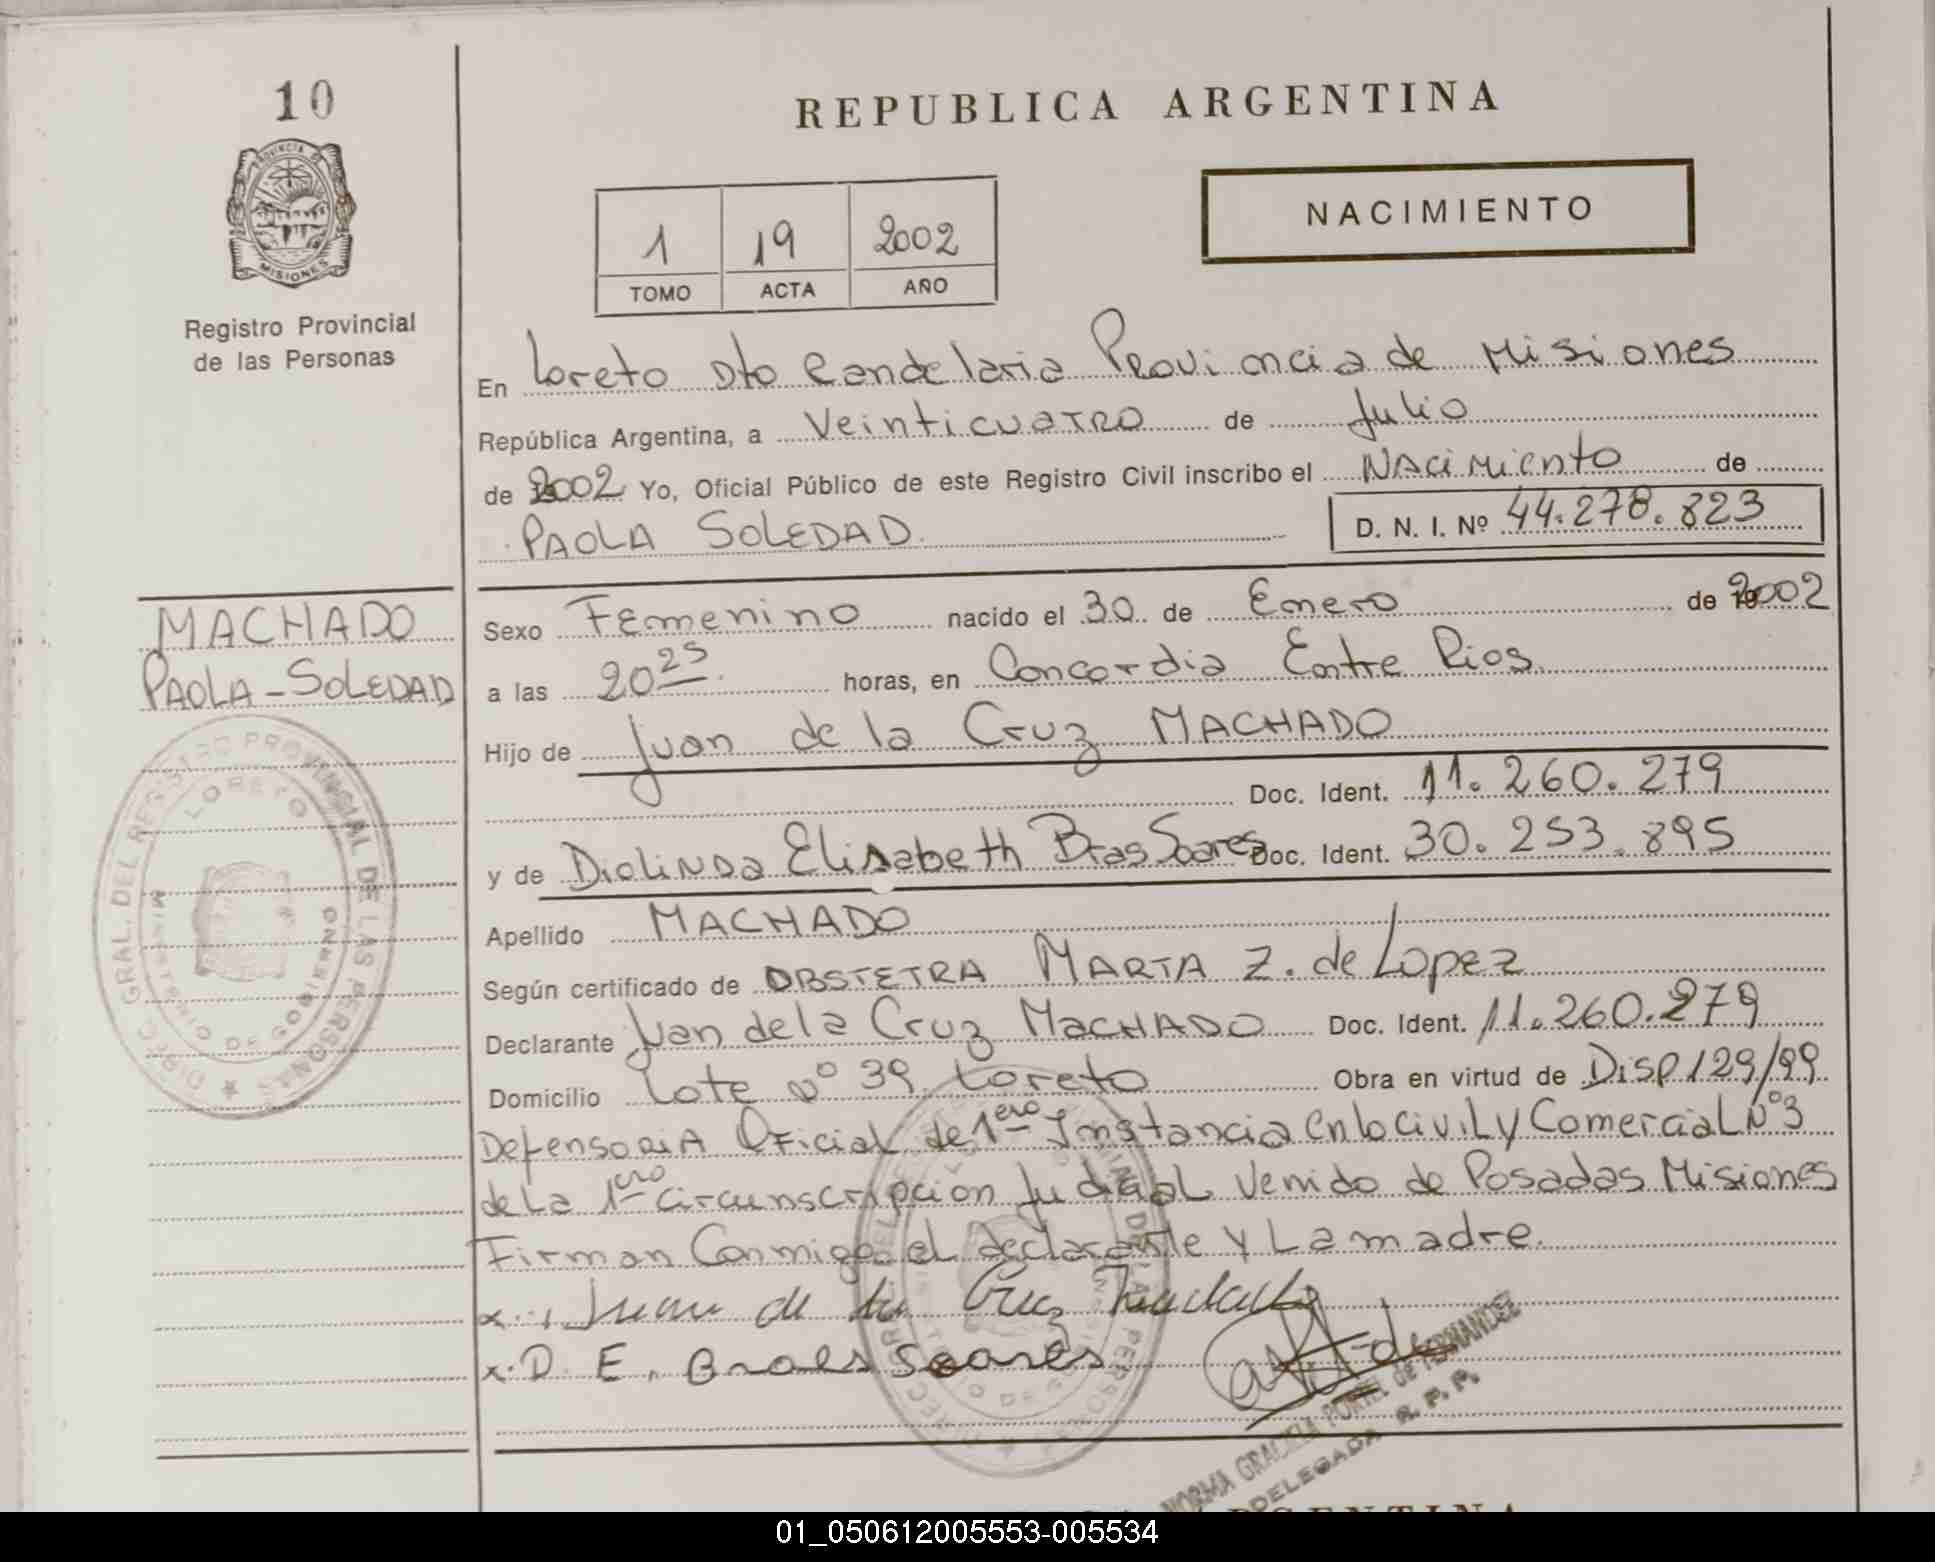 10
PROVINCIA DE
MISIONES
Registro Provincial
de las Personas
REPUBLICA ARGENTINA
NACIMIENTO
1 19 2002
TOMO ACTA AÑO
En Loreto Dto Candelaria Provioncia de Misiones
República Argentina, a Veinticuatro de Julio
de 2002 Yo, Oficial Público de este Registro Civil inscribo el Nacimiento de
PAOLA SOLEDAD.
D. N. I. Nº 44.278.823
MACHADO
PAOLA-SOLEDAD
Sexo Femenino nacido el 30 de Enero de 2002
a las 20 25 horas, en Concordia Entre Rios
Hijo de Juan de la Cruz MACHADO
Doc. Ident. 11.260.279
y de Diolinda Elisabeth Bras Soares Doc. Ident. 30.253.895
Apellido MACHADO
Según certificado de OBSTETRA MARTA Z. de Lopez
Declarante Juan de la Cruz MACHADO Doc. Ident. 11.260.279
Domicilio Lote Nº 39 Loreto Obra en virtud de Disp 129/99
Defensoria Oficial de 1ero Instancia en lo Civil y Comercial Nº3
de La 1ero Circunscripcion Judicial Venido de Posadas Misiones
Firman Conmigo el declarante y La madre.
x. Juan de la Cruz Machado
x. D. E. Braes Soares
DIREC. GRAL. DEL REGISTRO PROVINCIAL DE LAS PERSONAS
LORETO
MINISTERIO DE GOBIERNO
NORMA GRACIELA DE FERNANDEZ
DELEGADA R. P. P.
01_050612005553-005534